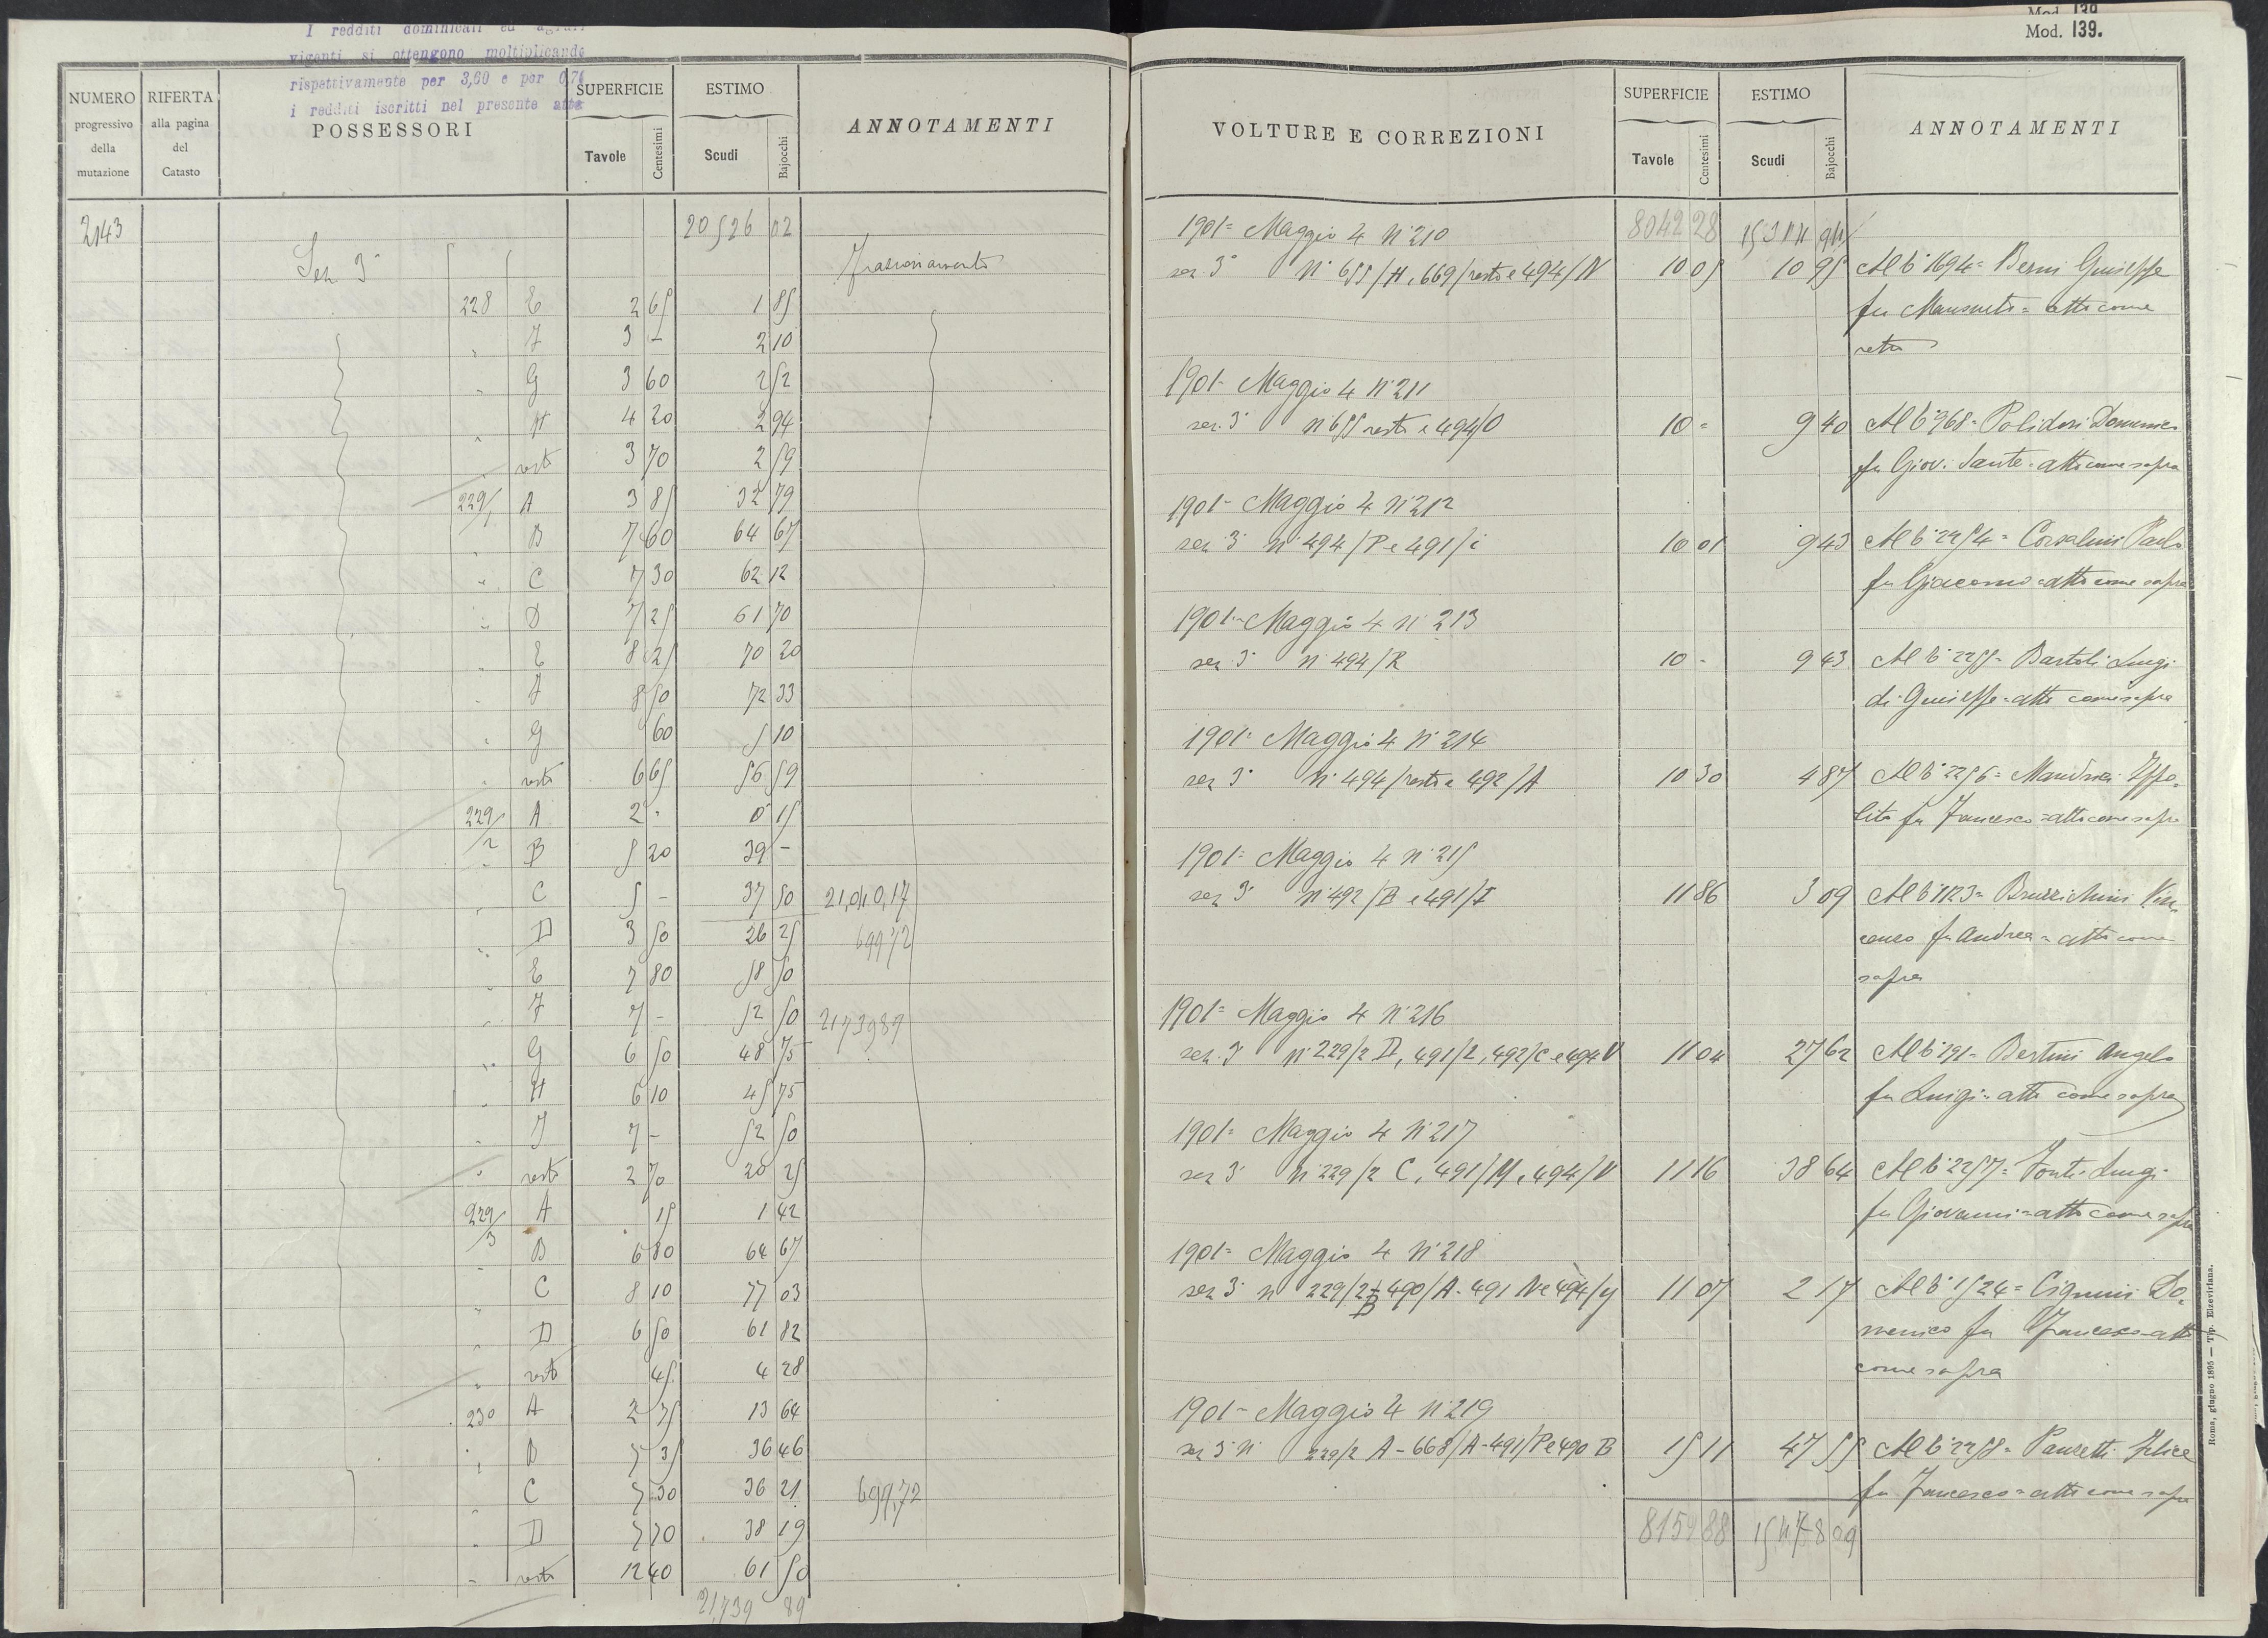 I redditi dominicali ed agrari
vigenti si ottengono moltiplicando
rispettivamente per 3,60 e per
i redditi iscritti nel presente atto
NUMERO progressivo della mutazione
RIFERTA alla pagina del Catasto
POSSESSORI
SUPERFICIE Tavole Centesimi
ESTIMO Scudi Bajocchi
ANNOTAMENTI
2143 20526 02
Sez 3° Frazionamento
228 E 2 65 1 85
" F 3 – 2 10
" G 3 60 2 52
" H 4 20 2 94
" resto 3 70 2 59
229/1 A 3 85 32 79
" B 7 60 64 67
" C 7 30 62 12
" D 7 25 61 70
" E 8 25 70 20
" F 8 50 72 33
" G 60 5 10
" resto 6 65 56 59
229/2 A 2 - 0 15
" B 5 20 39 –
" C 5 – 37 50 21,040,17
" D 3 50 26 25 699,72
" E 7 80 58 50
" F 7 – 52 50 21739 89
" G 6 50 48 75
" H 6 10 45 75
" I 7 – 52 50
" resto 2 70 20 25
229/3 A 15 1 42
" B 6 80 64 67
" C 8 10 77 03
" D 6 50 61 82
" resto 45 4 28
230 A 2 75 13 64
" B 7 35 36 46
" C 7 30 36 21 699,72
" D 7 70 38 19
" resto 12 40 61 50
21,739 89
Mod. 139.
Mod. 139.
VOLTURE E CORREZIONI
SUPERFICIE Tavole Centesimi
ESTIMO Scudi Bajocchi
ANNOTAMENTI
1901= Maggio 4 N° 210 8042 28 15314 94
sez. 3° N° 655/H, 669/resto e 494/N 10 05 10 95 Al b° 1694= Berni Giuseppe
fu Mansueto= atto come
retro
1901= Maggio 4 N° 211
sez. 3° N° 655 resto e 494/O 10 = 9 40 Al b° 968= Polidori Domenico
fu Giov. Sante= atto come sopra
1901= Maggio 4 N° 212
sez 3° N° 494/P e 491/i 10 01 9 43 Al b° 2254= Corsalini Paolo
fu Giacomo= atto come sopra
1901= Maggio 4 N° 213
sez. 3° N° 494/R 10 - 9 43 Al b° 2255= Bartoli Luigi
di Giuseppe= atto come sopra
1901= Maggio 4 N° 214
sez 3° N° 494/resto e 492/A 10 30 4 87 Al b° 2256= Ippo-
lito fu Francesco= atto come sopra
1901= Maggio 4 N° 215
sez 3° N° 492/B e 491/I 11 86 3 09 Al b° 1123= Bruzzichini Vin-
cenzo fu Andrea= atto come
sopra
1901= Maggio 4 N° 216
sez. 3° N° 229/2 D, 491/L, 492/C e 494 U 11 04 27 62 Al b° 191= Bertini Angelo
fu Luigi= atto come sopra
1901= Maggio 4 N° 217
sez 3° N° 229/2 C, 491/M, 494/V 11 16 38 64 Al b° 2257= Fonti Luigi
fu Giovanni= atto come sopra
1901= Maggio 4 N° 218
sez 3° N° 229/2 B 490/A - 491 N e 494/y 11 07 2 17 Al b° 1524= Cignini Do-
menico fu Francesco= atto
come sopra
1901= Maggio 4 N° 219
sez 3° N° 229/2 A - 668/A - 491/P e 490 B 15 11 47 55 Al b° 2258= Panzetti Felice
fu Francesco= atto come sopra
8152 88 15478 09
Roma, giugno 1895 — Tip. Elzeviriana.